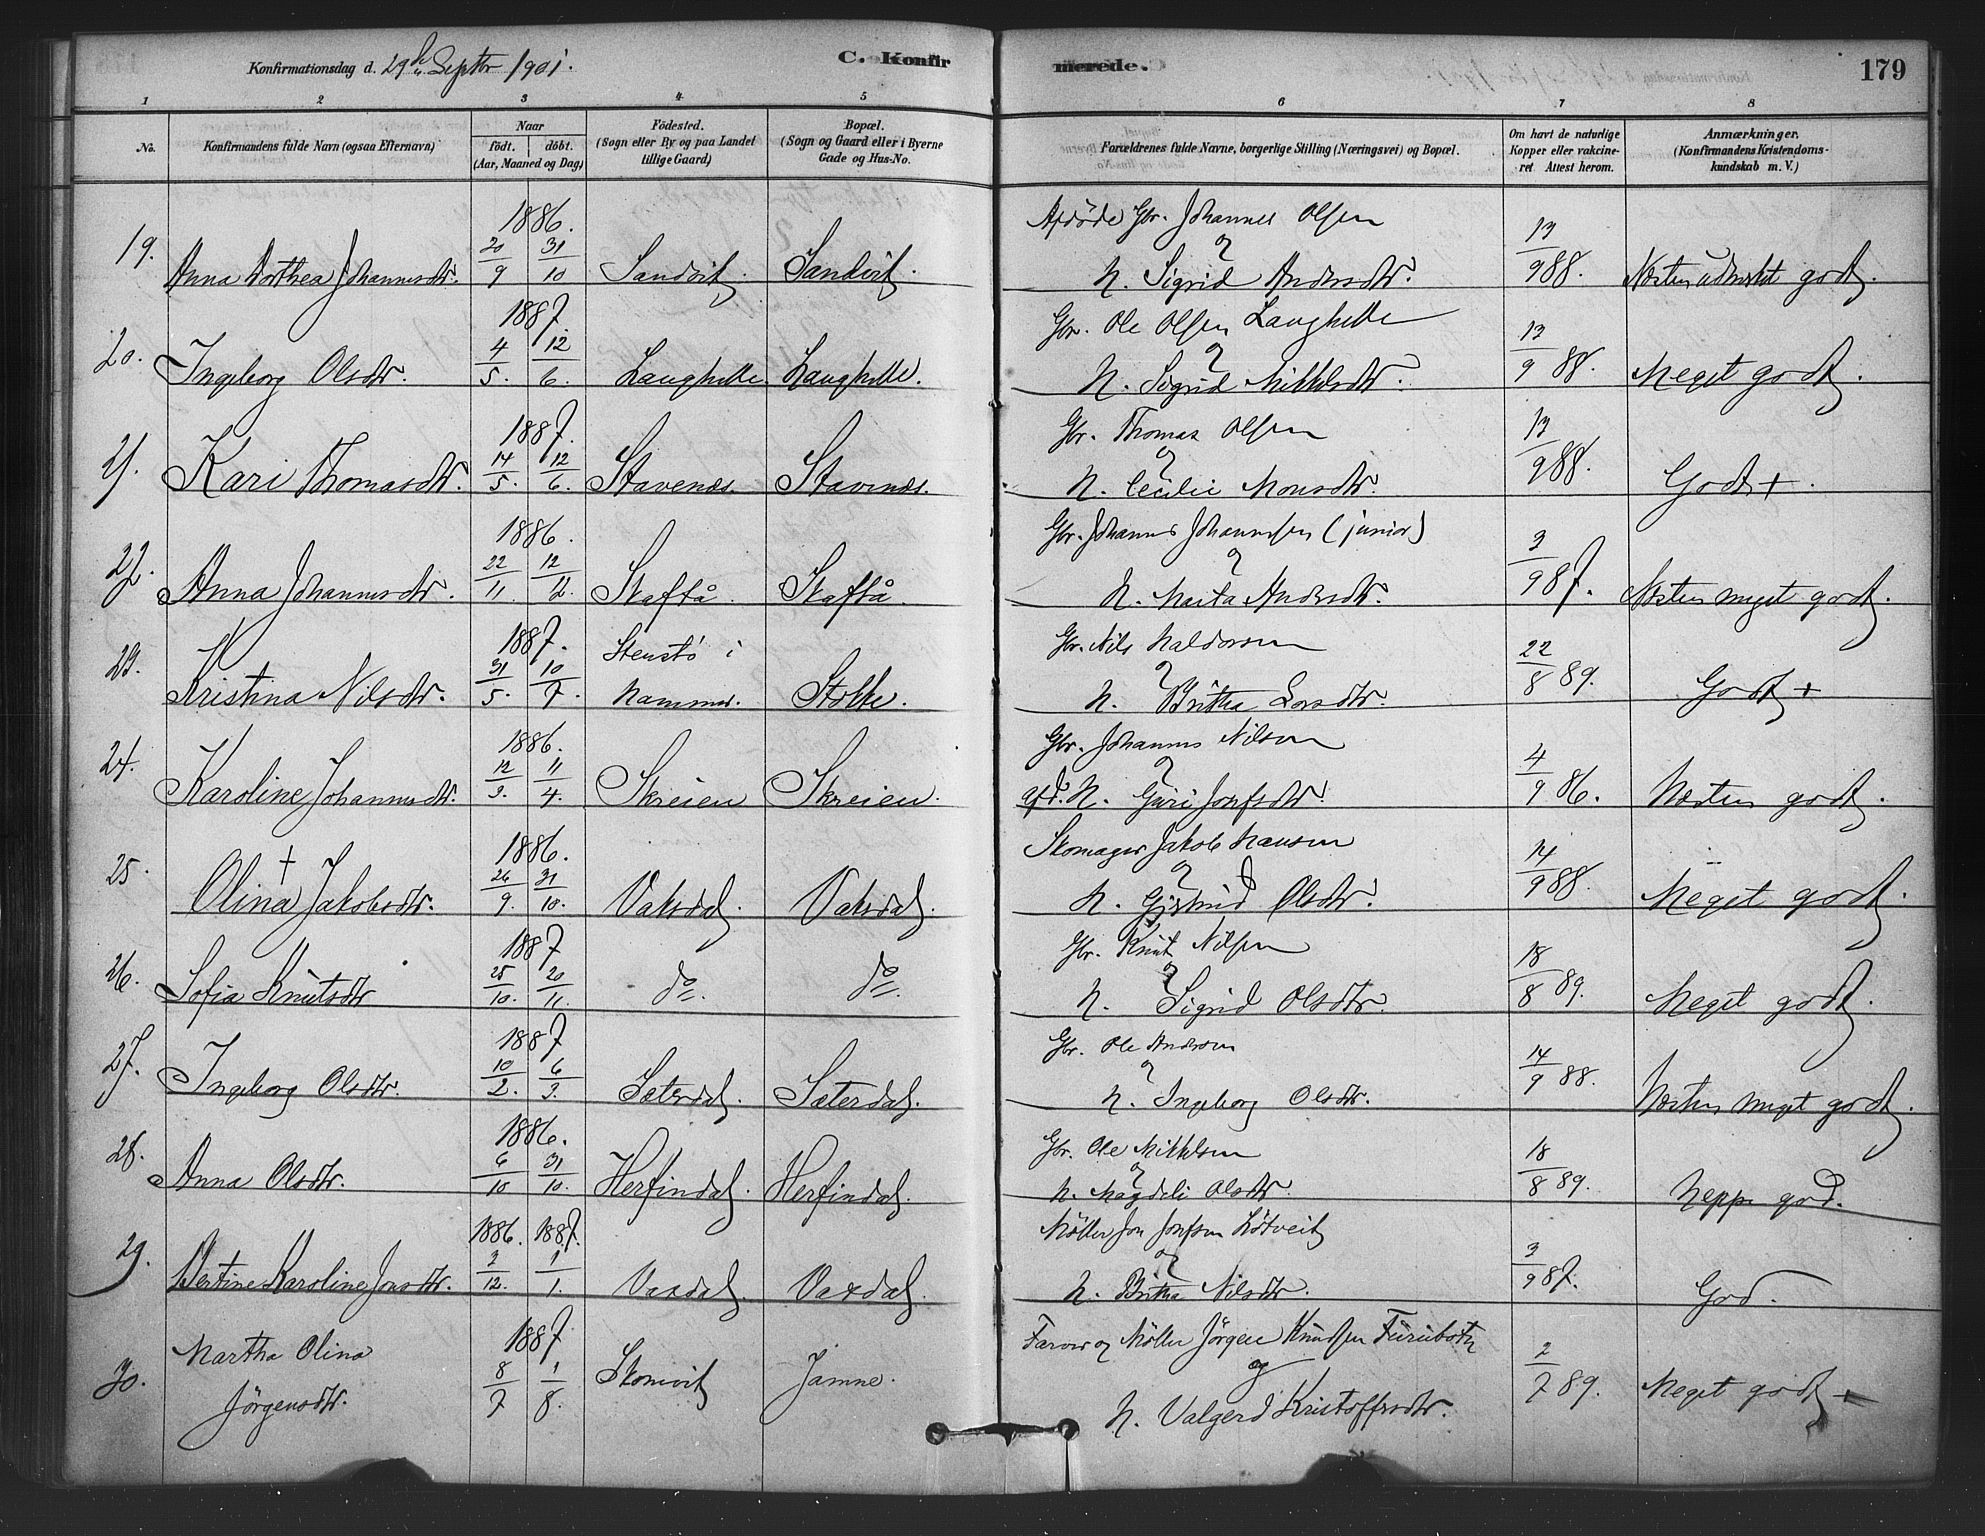 Konfirmationsdag d. 29de Septbr 1901.
C. Konfirmerede.
179
1 2 3 4 5 6 7 8
No.
Konfirmandens fulde Navn (ogsaa Efternavn)
Naar
födt. döbt.
(Aar, Maaned og Dag)
Födested.
(Sogn eller By og paa Landet
tillige Gaard)
Bopæl.
(Sogn og Gaard eller i Byerne
Gade og Hus-No.
Forældrenes fulde Navne, borgerlige Stilling (Næringsvei) og Bopæl.
Om havt de naturlige
Kopper eller vakcine-
ret Attest herom.
Anmærkninger.
(Konfirmandens Kristendoms-
kundskab m. V.)
1886. Afdöde Gbr. Johannes Olsen
19. Anna Dorthea Johannesdtr. 20/9 31/10 Sandvik. Sandvik. og H. Sigrid Andersdtr. 13/9 88. Næsten udmærket godt.
1887. Gbr. Ole Olsen Langhelle
20. Ingeborg Olsdtr. 4/5. 12/6. Langhelle. Langhelle. og H. Sigrid Mikkelsdtr. 13/9 88. Meget godt.
1887. Gbr. Thomas Olsen
21. Kari Thomasdtr. 14/5. 12/6. Stavenæs. Stavenæs. og H. Cecilie Monsdtr. 13/9 88. Godt +.
1886. Gbr. Johannes Johannessen (junior)
22. Anna Johannesdtr. 22/11. 12/12. Skaftå. Skaftå. og H. Marta Andersdtr. 3/9 87. Næsten meget godt.
1887. Stenstö i Gbr. Nils Haldorsen
23. Kristina Nilsdtr. 31/5. 10/7. Hammer. Stokke. og H. Britha Larsdtr. 22/8 89. Godt +
1886. Gbr. Johannes Nilsen
24. Karoline Johannesdtr. 12/3. 11/4. Skreien Skreien. og afd. H. Guri Josefsdtr. 4/9 86. Næsten godt.
1886. Skomager Jakob Hansen
25. Olina + Jakobsdtr. 26/9. 31/10. Vaksdal. Vaksdal. og H. Gjertrud Olsdtr. 14/9 88. Meget godt.
1887 Gbr. Knut Nilsen
26. Sofia Knutsdtr 25/10. 20/11. do. do. og H. Sigrid Olsdtr. 18/8 89. Meget godt.
1887 Gbr. Ole Andersen
27. Ingeborg Olsdtr. 10/2. 6/3. Sæterdal. Sæterdal. og H. Ingeborg Olsdtr. 14/9 88. Næsten meget godt.
1886. Gbr. Ole Mikkelsen
28. Anna Olsdtr. 6/10 31/10. Herfindal. Herfindal. og H. Magdeli Olsdtr. 18/8 89. Neppe god.
1886. 1887. Möller Jon Josefsen Lötveit
29. Bertine Karoline Jonsdtr. 3/12. 1/1. Vaxdal. Vaxdal. og H. Britha Nilsdtr. 3/9 87. God.
Martha Olina 1887 Farver og Möller Jörgen Knudsen Furubotn
30. Jörgensdtr. 8/7 1/8. Skomvik Jamne. og H. Valgerd Kristoffersdtr. 2/7 89. Meget godt +